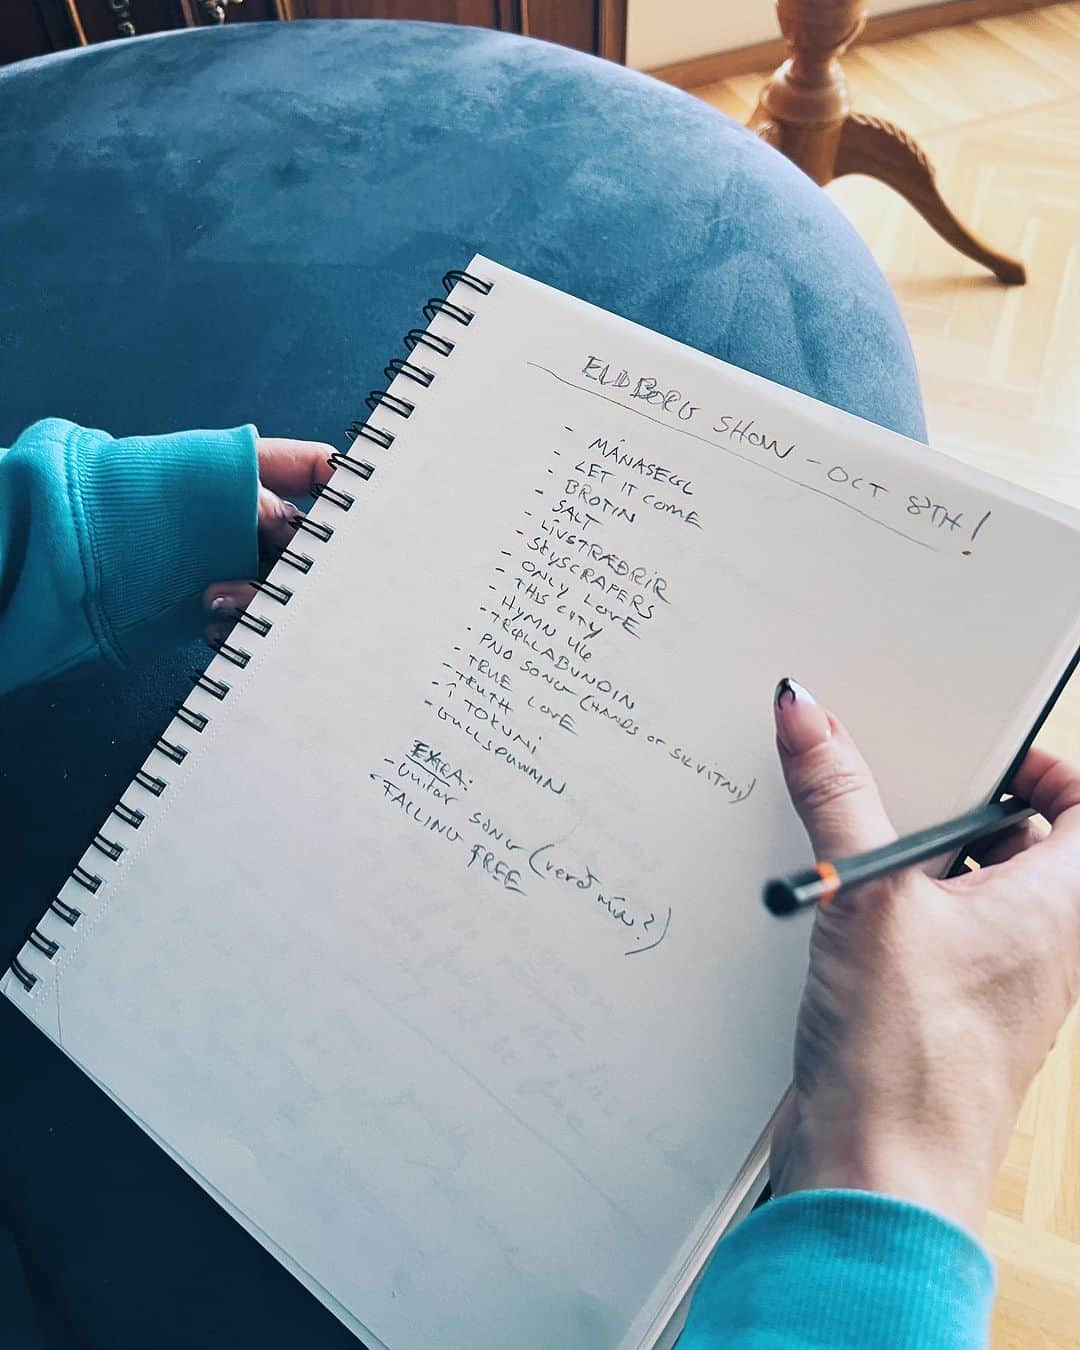 ELDBORG SHOW - OCT 8TH!
- MÁNASEGL
- LET IT COME
- BROTIN
- SALT
- LÍVSTRÆÐRIR
- SKYSCRAPERS
- ONLY LOVE
- THIS CITY
- HYMN 46
- TRØLLABUNDIN
- PNO SONG (HANDS OF SILVITNI)
- TRUE LOVE
- TRUTH
- Í TOKUNI
- GULLSPUNNIN
EXTRA:
- Guitar SONG (verð mín?)
- FALLING FREE